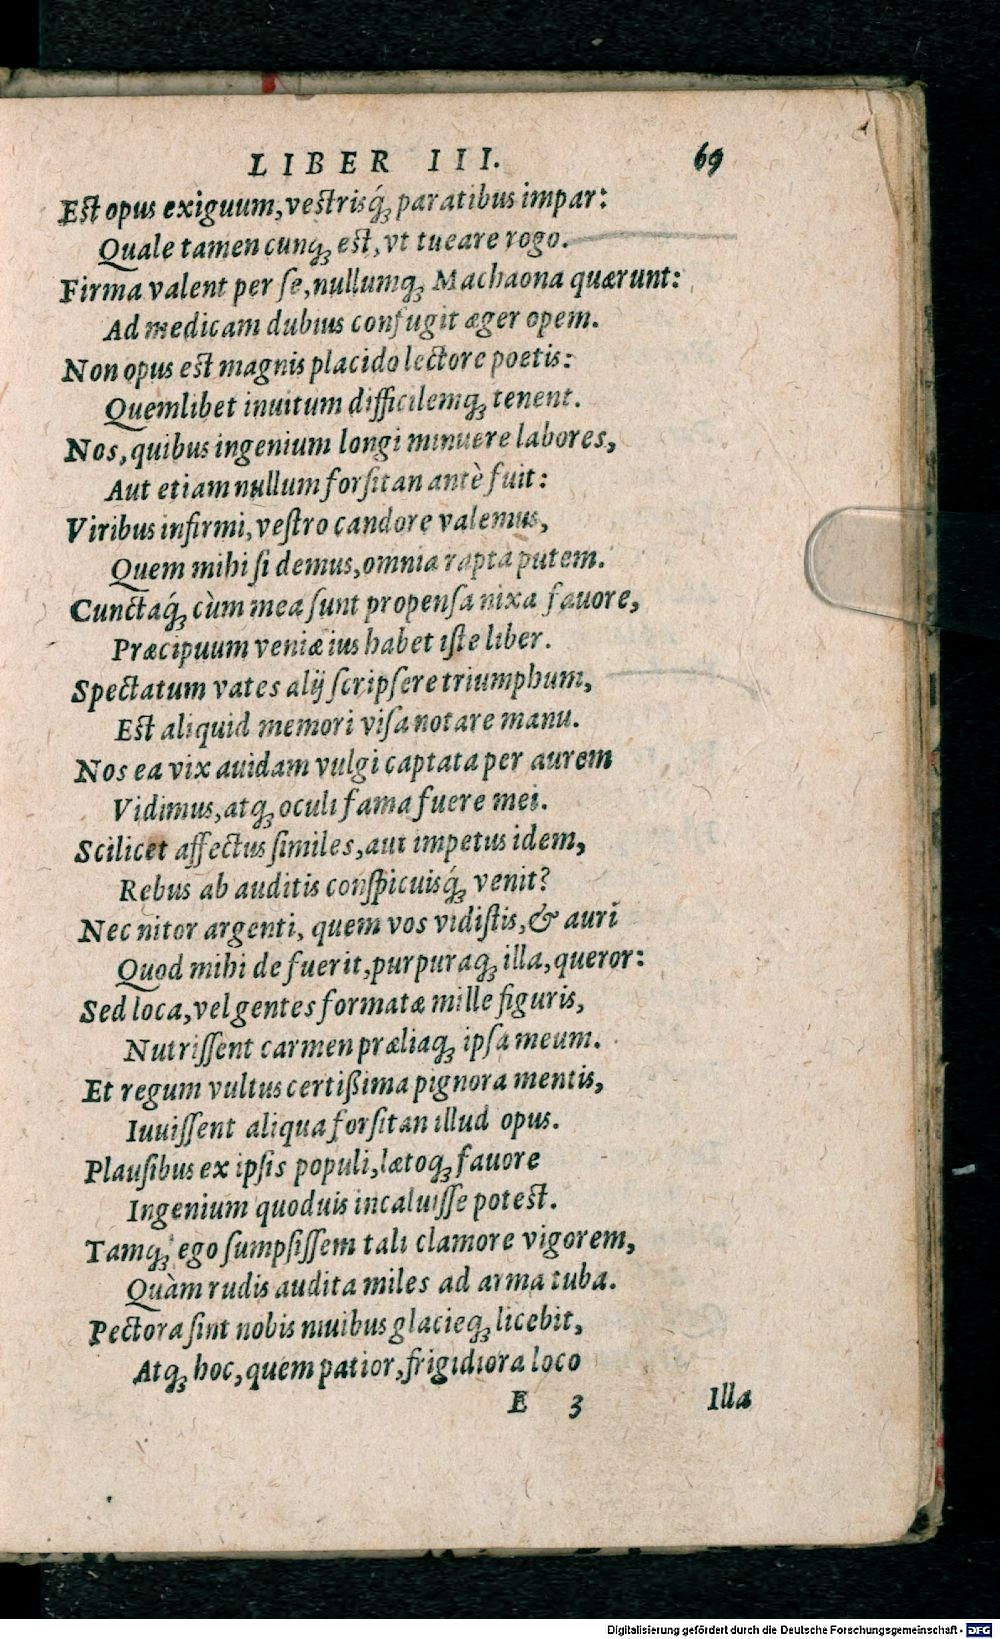 LIBER III. 69
Est opus exiguum, vestrisq́; paratibus impar:
Quale tamen cunq; est, vt tueare rogo.
Firma valent per se, nullumq; Machaona quærunt:
Ad medicam dubius confugit æger opem.
Non opus est magnis placido lectore poetis:
Quemlibet inuitum difficilemq; tenent.
Nos, quibus ingenium longi minuere labores,
Aut etiam nullum forsitan antè fuit:
Viribus infirmi, vestro candore valemus,
Quem mihi si demus, omnia rapta putem.
Cunctaq́; cùm mea sunt propensa nixa fauore,
Præcipuum veniæ ius habet iste liber.
Spectatum vates alij scripsere triumphum,
Est aliquid memori visa notare manu.
Nos ea vix auidam vulgi captata per aurem
Vidimus, atq; oculi fama fuere mei.
Scilicet affectus similes, aut impetus idem,
Rebus ab auditis conspicuisq́; venit?
Nec nitor argenti, quem vos vidistis, & auri
Quod mihi defuerit, purpuraq; illa, queror:
Sed loca, vel gentes formatæ mille figuris,
Nutrissent carmen præliaq; ipsa meum.
Et regum vultus certißima pignora mentis,
Iuuissent aliqua forsitan illud opus.
Plausibus ex ipsis populi, lætoq; fauore
Ingenium quoduis incaluisse potest.
Tamq; ego sumpsissem tali clamore vigorem,
Quàm rudis audita miles ad arma tuba.
Pectora sint nobis niuibus glacieq; licebit,
Atq; hoc, quem patior, frigidiora loco
E 3 Illa
Digitalisierung gefördert durch die Deutsche Forschungsgemeinschaft - DFG